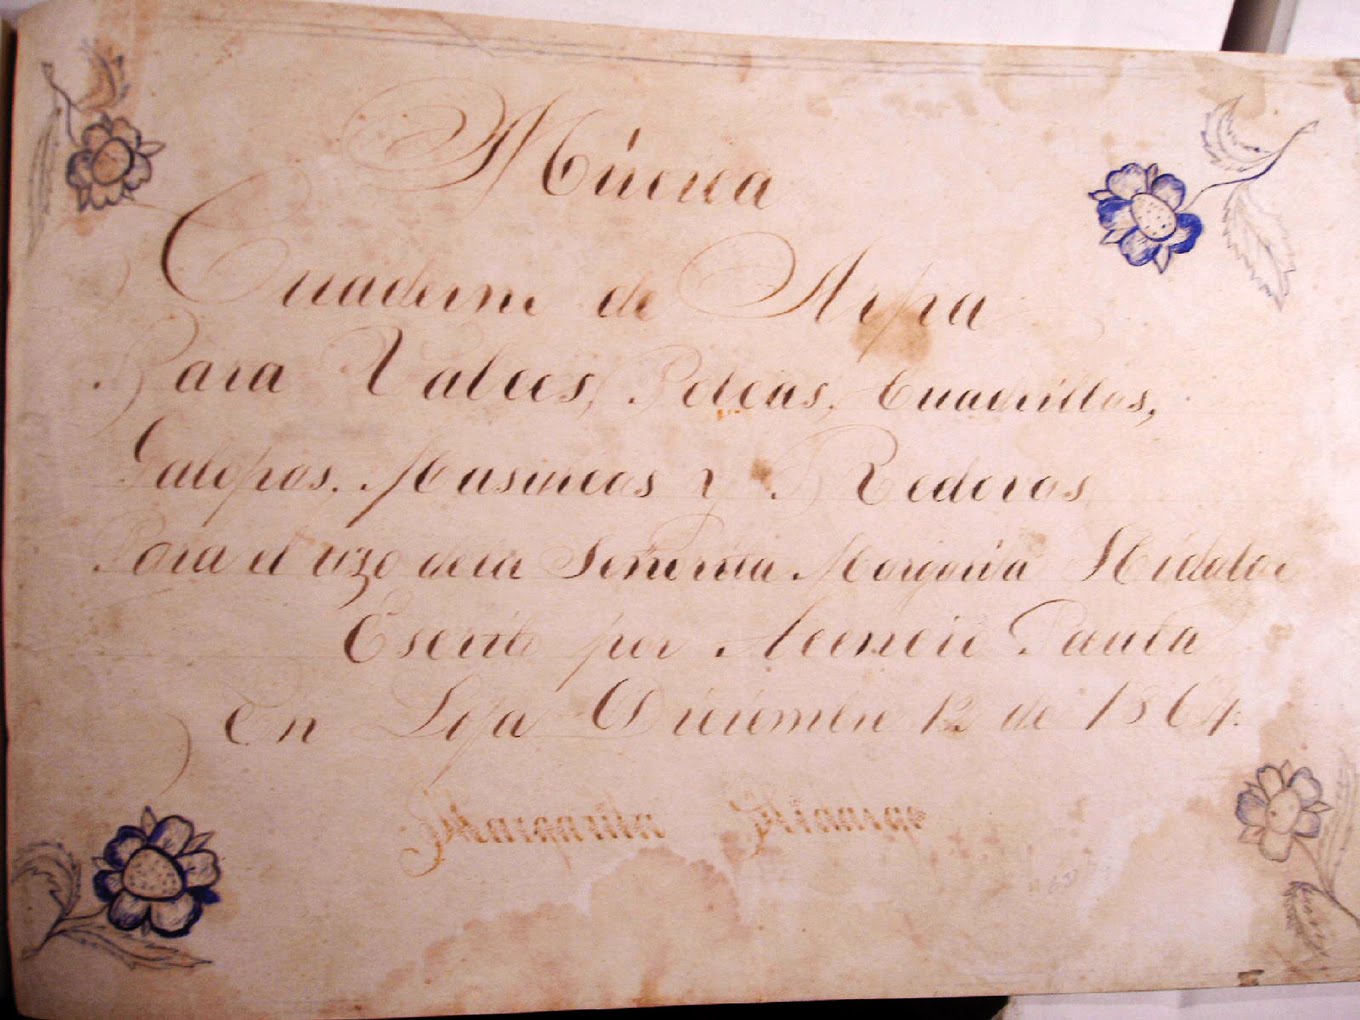 Música
Cuaderno de Arpa
Para Valces, Polcas, Cuadrillas,
Galopas, Masurcas y Rederos
Para el uzo de la Señorita Margarita Hidalgo
Escrito por Paula
En Diciembre 12 de 1864.
Margarita Hidalgo